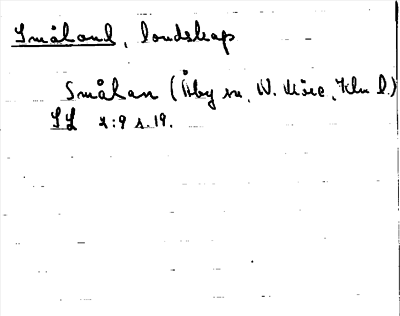 Småland, landskap
Smålan (Åby sn, N. Möre, Klm l.)
SL X:9 s. 19.